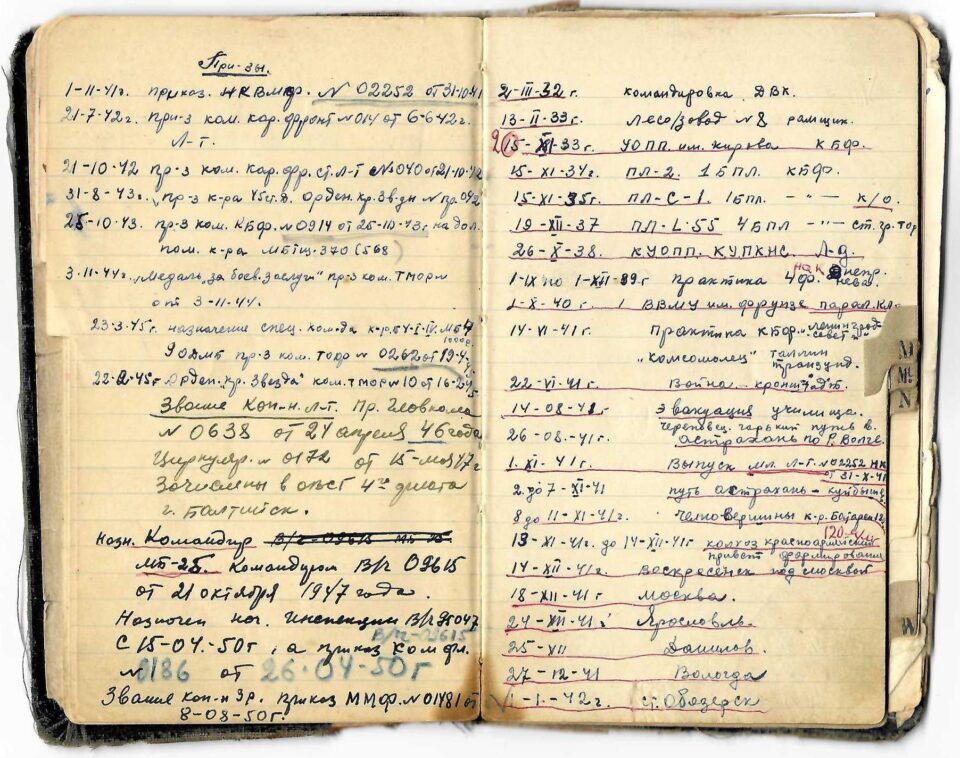 При-зы.
1-11-41г. приказ. НКВМФ. N 02252 от 31-10-41
21-7-42г. при-з ком. кар. фронт N 014 от 6-6 42г.
Л-т.
21-10-42 пр-з ком. Кар. фр. ст. Л-Т N 040 от 21-10-42
31-8-43г. пр-з к-ра 45 с.д. Орден кр. Зв. дн N пр. 042
25-10-43. пр-з ком. КБФ. N 0914 от 25-10-43г на дол.
пом. к-ра МБТЩ-370 (568)
3-11-44г. "Медаль "за боев. заслуги" пр-з ком. ТМОР N
от 3-11-44.
23-3-45г. назначение спец. ком-да к-р. БЧ-I-IV МБ 4
9 ОДМБ пр-з ком. ТОФ N 0262 от 19-4-45
22-2-45г Орден "Кр. Звезда" ком. ТМОР N 10 от 16-2-45
Звание Кап-н. Л-т. Пр. Главкома
N 0638 от 24 апреля 46 года
Циркуляр. N 0172 от 15-мая 47г
Зачислены в
г. Балтийск.
Назн. Командир
МБ-25. Командиром В/ч 09615
от 21 октября 1947 года.
Назначен нач. инспекции В/ч 95047
В/ч-09615
С 15-04-50г, а приказ ком. фл.
N 0186 от 26-04-50г
Звание кап-н 3р. приказ ММФ. N 01481 от
8-08-50г.
21-III-32г. командировка ДВК.
13-II-33г. Лесо/завод N 8 рамщик.
20 15-XI-33г. УОПП им. Кирова КБФ.
15-XI-34г. ПЛ-2. 1 БПЛ КБФ.
15-XI-35г. ПЛ-С-1. 1 БПЛ. - "- к/о.
19-XII-37 ПЛ-L-55 4 БПЛ - "- ст. гр. тор
26-X-38. КУОПП. КУПКНС. Л-д.
1-IX по 1-XII-39г практика 4ф. на к Днепр. Нева.
1-X-40г. 1 ВВМУ им. Фрунзе парал. Кл-
14-VI-41г. Практика КБФ. "Ленинград-совет"
"Комсомолец" Таллин
транзунд.
22-VI-41г. Война - Кронштадт.
14-08-41г. эвакуация училища.
Череповец. Горький путь в.
26-08.-41г. Астрахань по Р. Волге.
1. XI-41г. Выпуск мл. Л-т. N 02252 НК
от 31-X-41
2. до 7-XI-41 путь Астрахань - Куйбышев
8 до 11-XI-41г. Челновершины к-р. Батареи 12
120-
13-XI-41г. до 14-XII-41г колхоз красноармейский
привет формирования
14-XII-41г. Воскресенск под Москвой
18-XII-41г Москва.
24-XII-41г Ярославль.
25-XII Данилов.
27-12-41 Вологда
1-1.-42г. ст. Обозерск
М
М
N